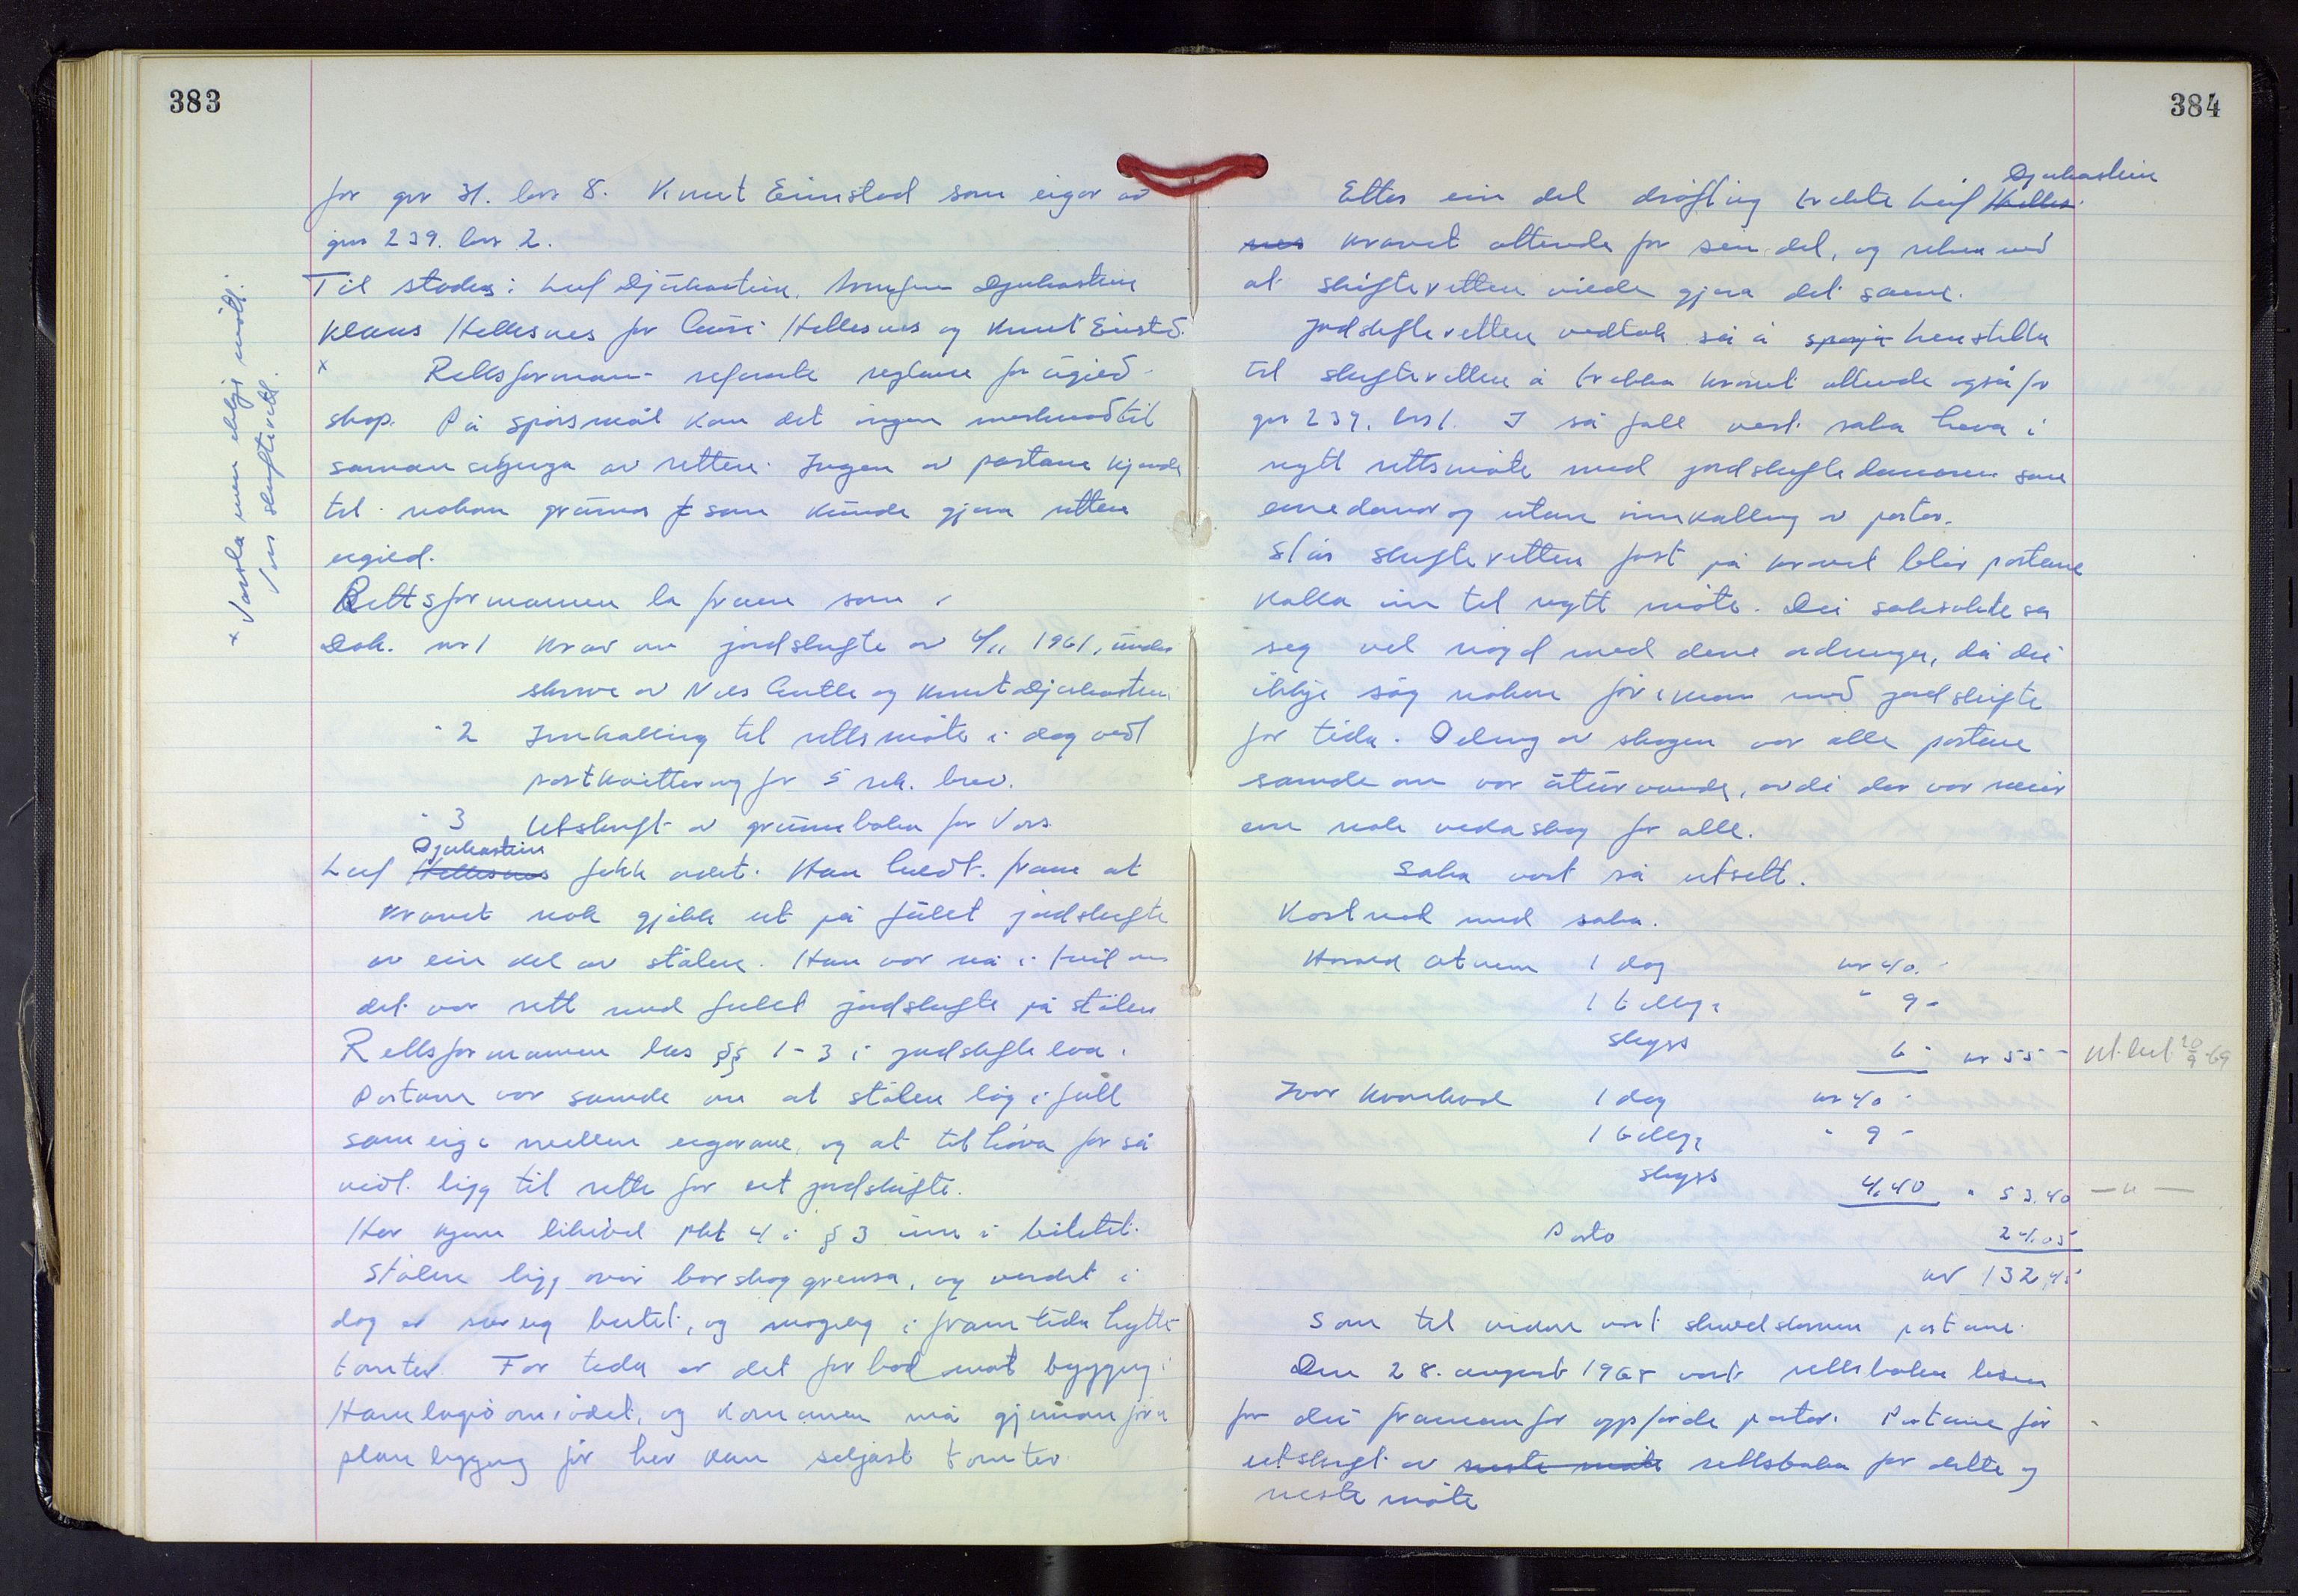 383
for gnr 31. bnr 8. Knut Eimstad som eigar av
gnr 239. bnr 2.
Til stades: Leif Djukastein, Djukastein
Klaus Hellesnes for Hellesnes og Knut Eimstad.
x Rettsformann refererte reglane for ugild-
skap. På spørsmål kom det ingen merknad til
samansetjinga av retten. Ingen av partane kjende
til nokon grunn som kunde gjera retten
ugild.
Rettsformannen la fram som
Dok. nr 1 Krav om jordskifte av 4/11 1961, under
skrive av Nils og Knut Djukastein
" 2 Innkalling til rettsmøte i dag vedl
postkvittering for 5 rek. brev.
" 3 Utskrift av grunnboka for Voss
Djukastein
Leif Hellesnes fekk ordet. Han heldt fram at
kravet nok gjekk ut på fullt jordskifte
av ein del av stølen. Han var nå i tvil om
det var rett med fullt jordskifte på stølen
Rettsformannen las §§ 1-3 i jordskiftelova.
Partane var samde om at stølen låg i full
sameige mellom eigarane, og at tilhøva for så
vidt ligg til rette for eit jordskifte.
Her kjem likevel pkt 4 i § 3 inn i biletet.
Stølen ligg over barskoggrensa, og verdet i
dag er sæleg beitet, og mogleg i framtida hytte
tomter. For tida er det forbod mot bygging i
Hamlagrøområdet, og komunen må gjennomføra
planlegging før her kan seljast tomter.
x Varsla men ikkje møtt:
Voss skifterett.
384
Djukastein
Etter ein del drøfting trekte Leif Helles-
nes kravet attende for sin del, og rekna med
at skifteretten vilde gjera det same.
Jordskifteretten vedtok så å spørja henstilla
til skifteretten å trekka kravet attende også for
gnr 239. bnr 1. I så fall vert saka heva i
nytt rettsmøte med jordskiftedomaren som
einedomar og utan innkalling av partar.
Står skifteretten fast på kravet blir partane
kalla inn til nytt møte. Dei saksøkte sa
seg vel nøgd med denne ordninga, då dei
ikkje såg nokon føremon med jordskifte
for tida. Deling av skogen var alle partane
samde om var uturvande, avdi der var meir
enn nok vedaskog for alle.
Saka vart så utsett.
Kostnad med saka.
Harald Otnem 1 dag kr 40.-
1 tillegg " 9 -
skyss 6 - kr 55 - Utbet 20/9-69
Ivar Kvarekvål 1 dag kr 40 -
1 tillegg " 9 -
skyss 4,40 " 53.40 — " —
Porto 24.05
kr 132,45
Som til vidare vart skuvd saman partane.
Den 28. august 1968 vart rettsboka lesen
for dei framanfor oppførde partar. Partane får
utskrift av neste møte rettsboka for dette og
neste møte